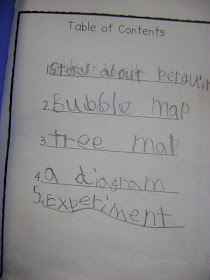 Table of Contents
story about penguin
2. Bubble map
3. tree map
4. a diagram
5. Experiment